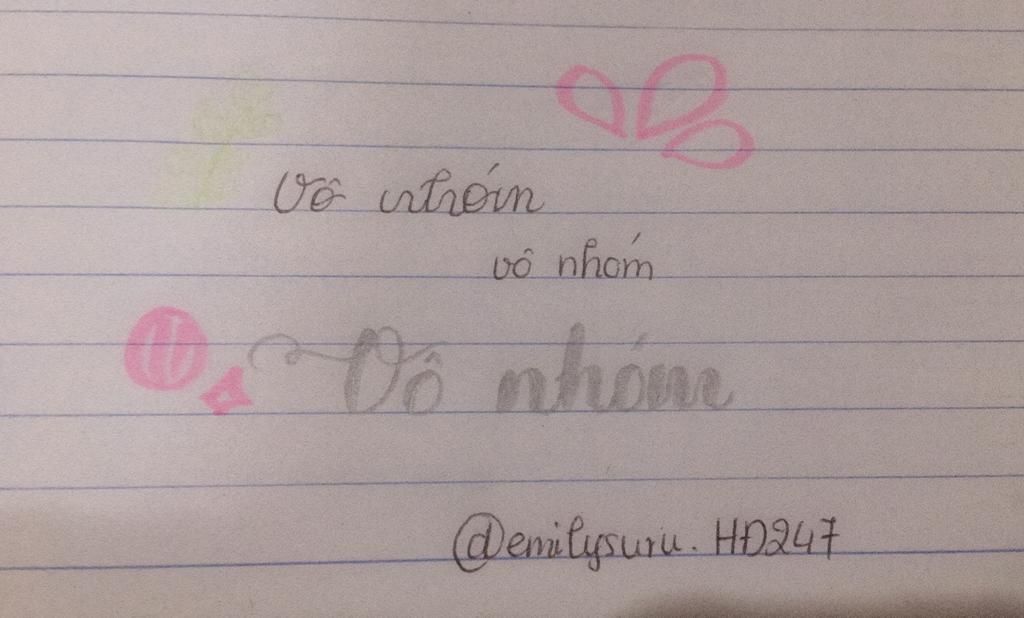 Vô nhóm
vô nhóm
Vô nhóm
@emilysuru.HĐ247